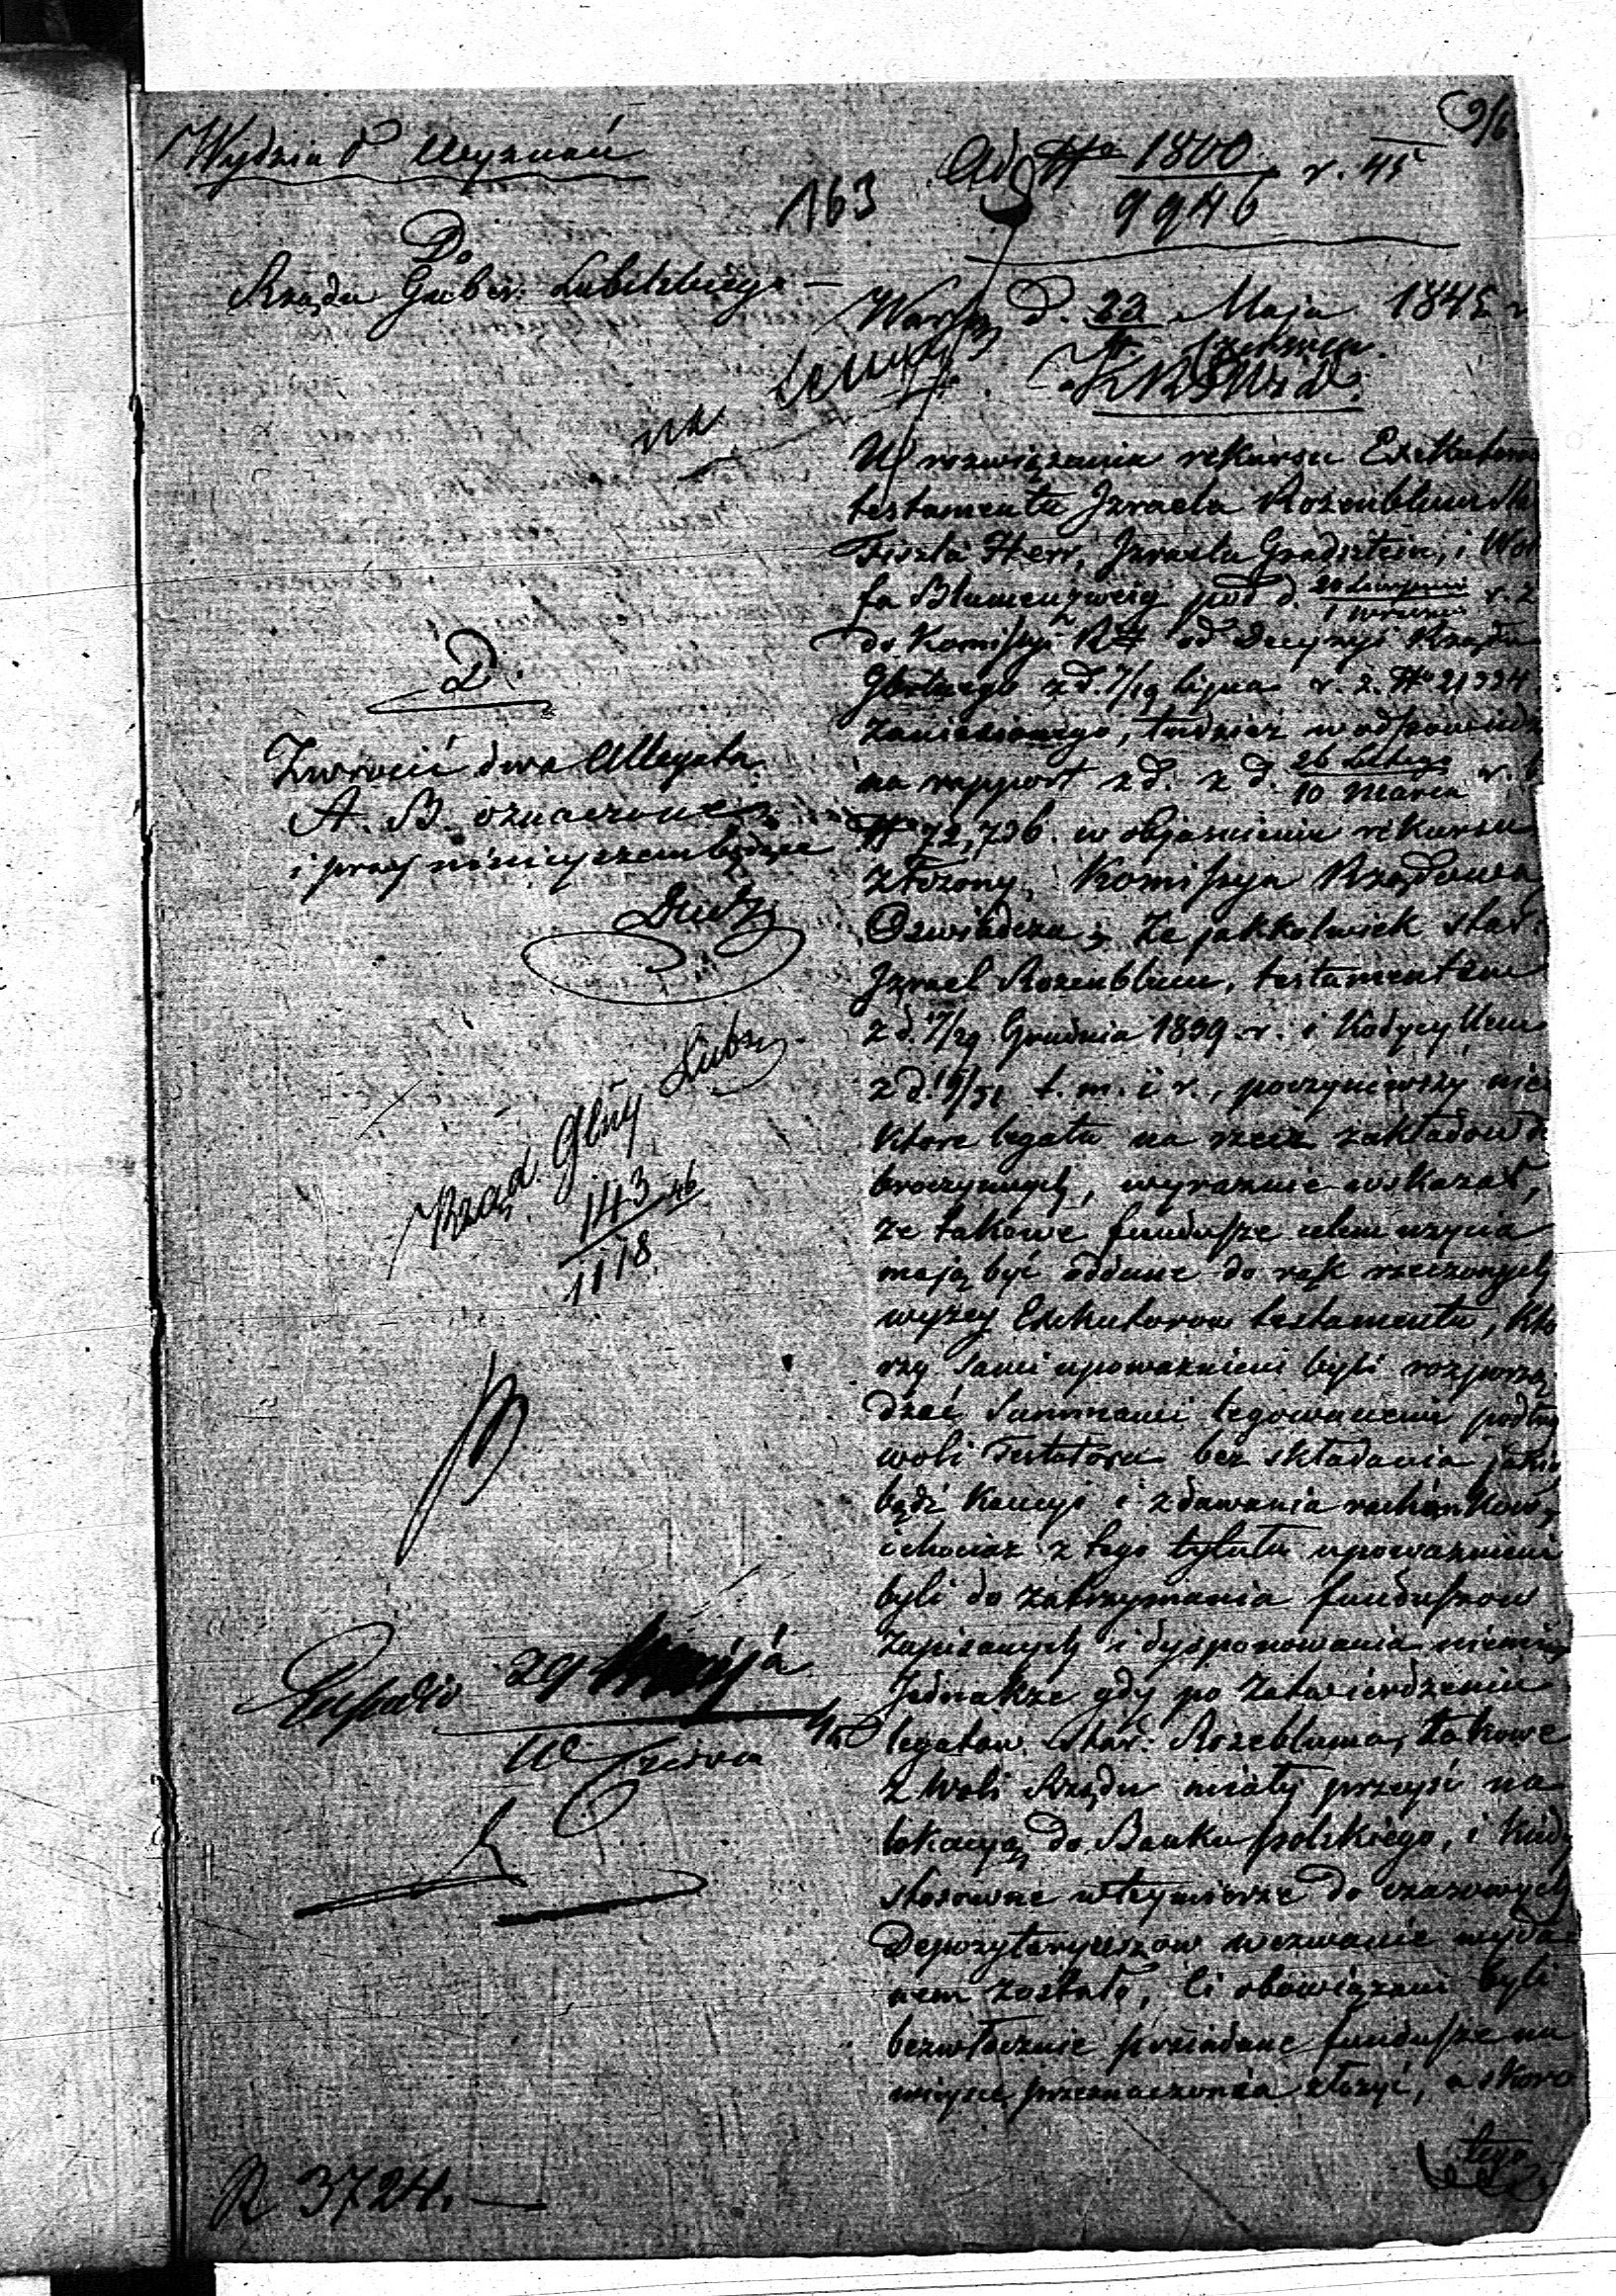 Wydział Wyznań
Ad No 1800/9946 r. 45
163
Do
Rządu Guber. Lubelskiego
Warsz. D. 23 Maja 1845 r
Czerwca
K R S W i D.
W rozwiązaniu rekursu Exekutorów
testamentu Izraela Rozenblum
Herr, Izraela Gradsztein, i Wol
fa Blumenzweig pod d. 20 Sierpnia/1 Września r. z
do Komissyi R od decyzyi Rządu
Gbrlnego z d. 7/19 Lipca r. z. No 21334
zaniesionego, tudzież w odpowiedzi
na rapport z d. z d. 26 Lutego/10 Marca r. b
No 72,736. w objaśnieniu rekursu
złożony, Komissya Rządowa
Oświadcza; Że jakkolwiek star:
Izrael Rozenblum, testamentem
z d. 17/29 Grudnia 1839 r. i Kodycyllem
z d. 19/31 t. m. i r., poczyniwszy nie
które legata na rzecz zakładów do
broczynnych, wyraźnie wskazał,
że takowe fundusze celem użycia
mają być oddane do rąk rzeczonych
wyżey Exekutorow testamentu, któ
rzy sami upoważnieni byli rozporzą
dzać summami legowanemi podług
woli Testatora bez składania jakiej
bądź kaucyi i zdawania rachunków,
i chociaż z tego tytułu upoważnieni
byli do zatrzymania funduszow
zapisanych i dysponowania niemi,
Jednakże gdy po zatwierdzeniu
legatow star: Rozebluma, takowe
z woli Rządu miały przeyść na
lokacyą do Banku polskiego, i kiedy
stosowne w tey mierze do czasowych
Depozytaryuszow wezwanie wyda
nem zostało, Ci obowiązani byli
bezwłocznie posiadane fundusze na
mieysce przeznaczenia złożyć, a skoro
tego
D.
Zwrocić dwa Allegata
A. B. oznaczone
i przy ninieyszem będące
Rząd. Glny Lubs.
143/1118 46
29 Maja
Czerwca 45
R 3724.